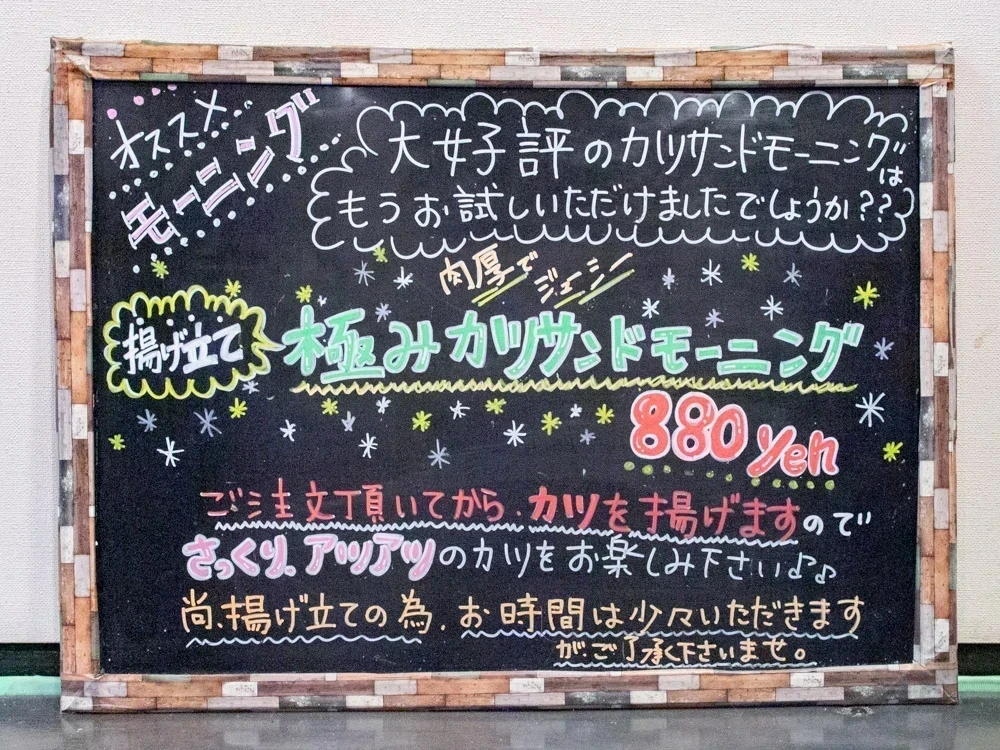 オススメ
モーニング
大好評のカツサンドモーニングは
もうお試しいただけましたでしょうか??
肉厚でジューシー
揚げ立て
極みカツサンドモーニング
880yen
ご注文頂いてから、カツを揚げますので
さっくり、アツアツのカツをお楽しみ下さい♪♪
尚、揚げ立ての為、お時間は少々いただきます
が、ご了承下さいませ。